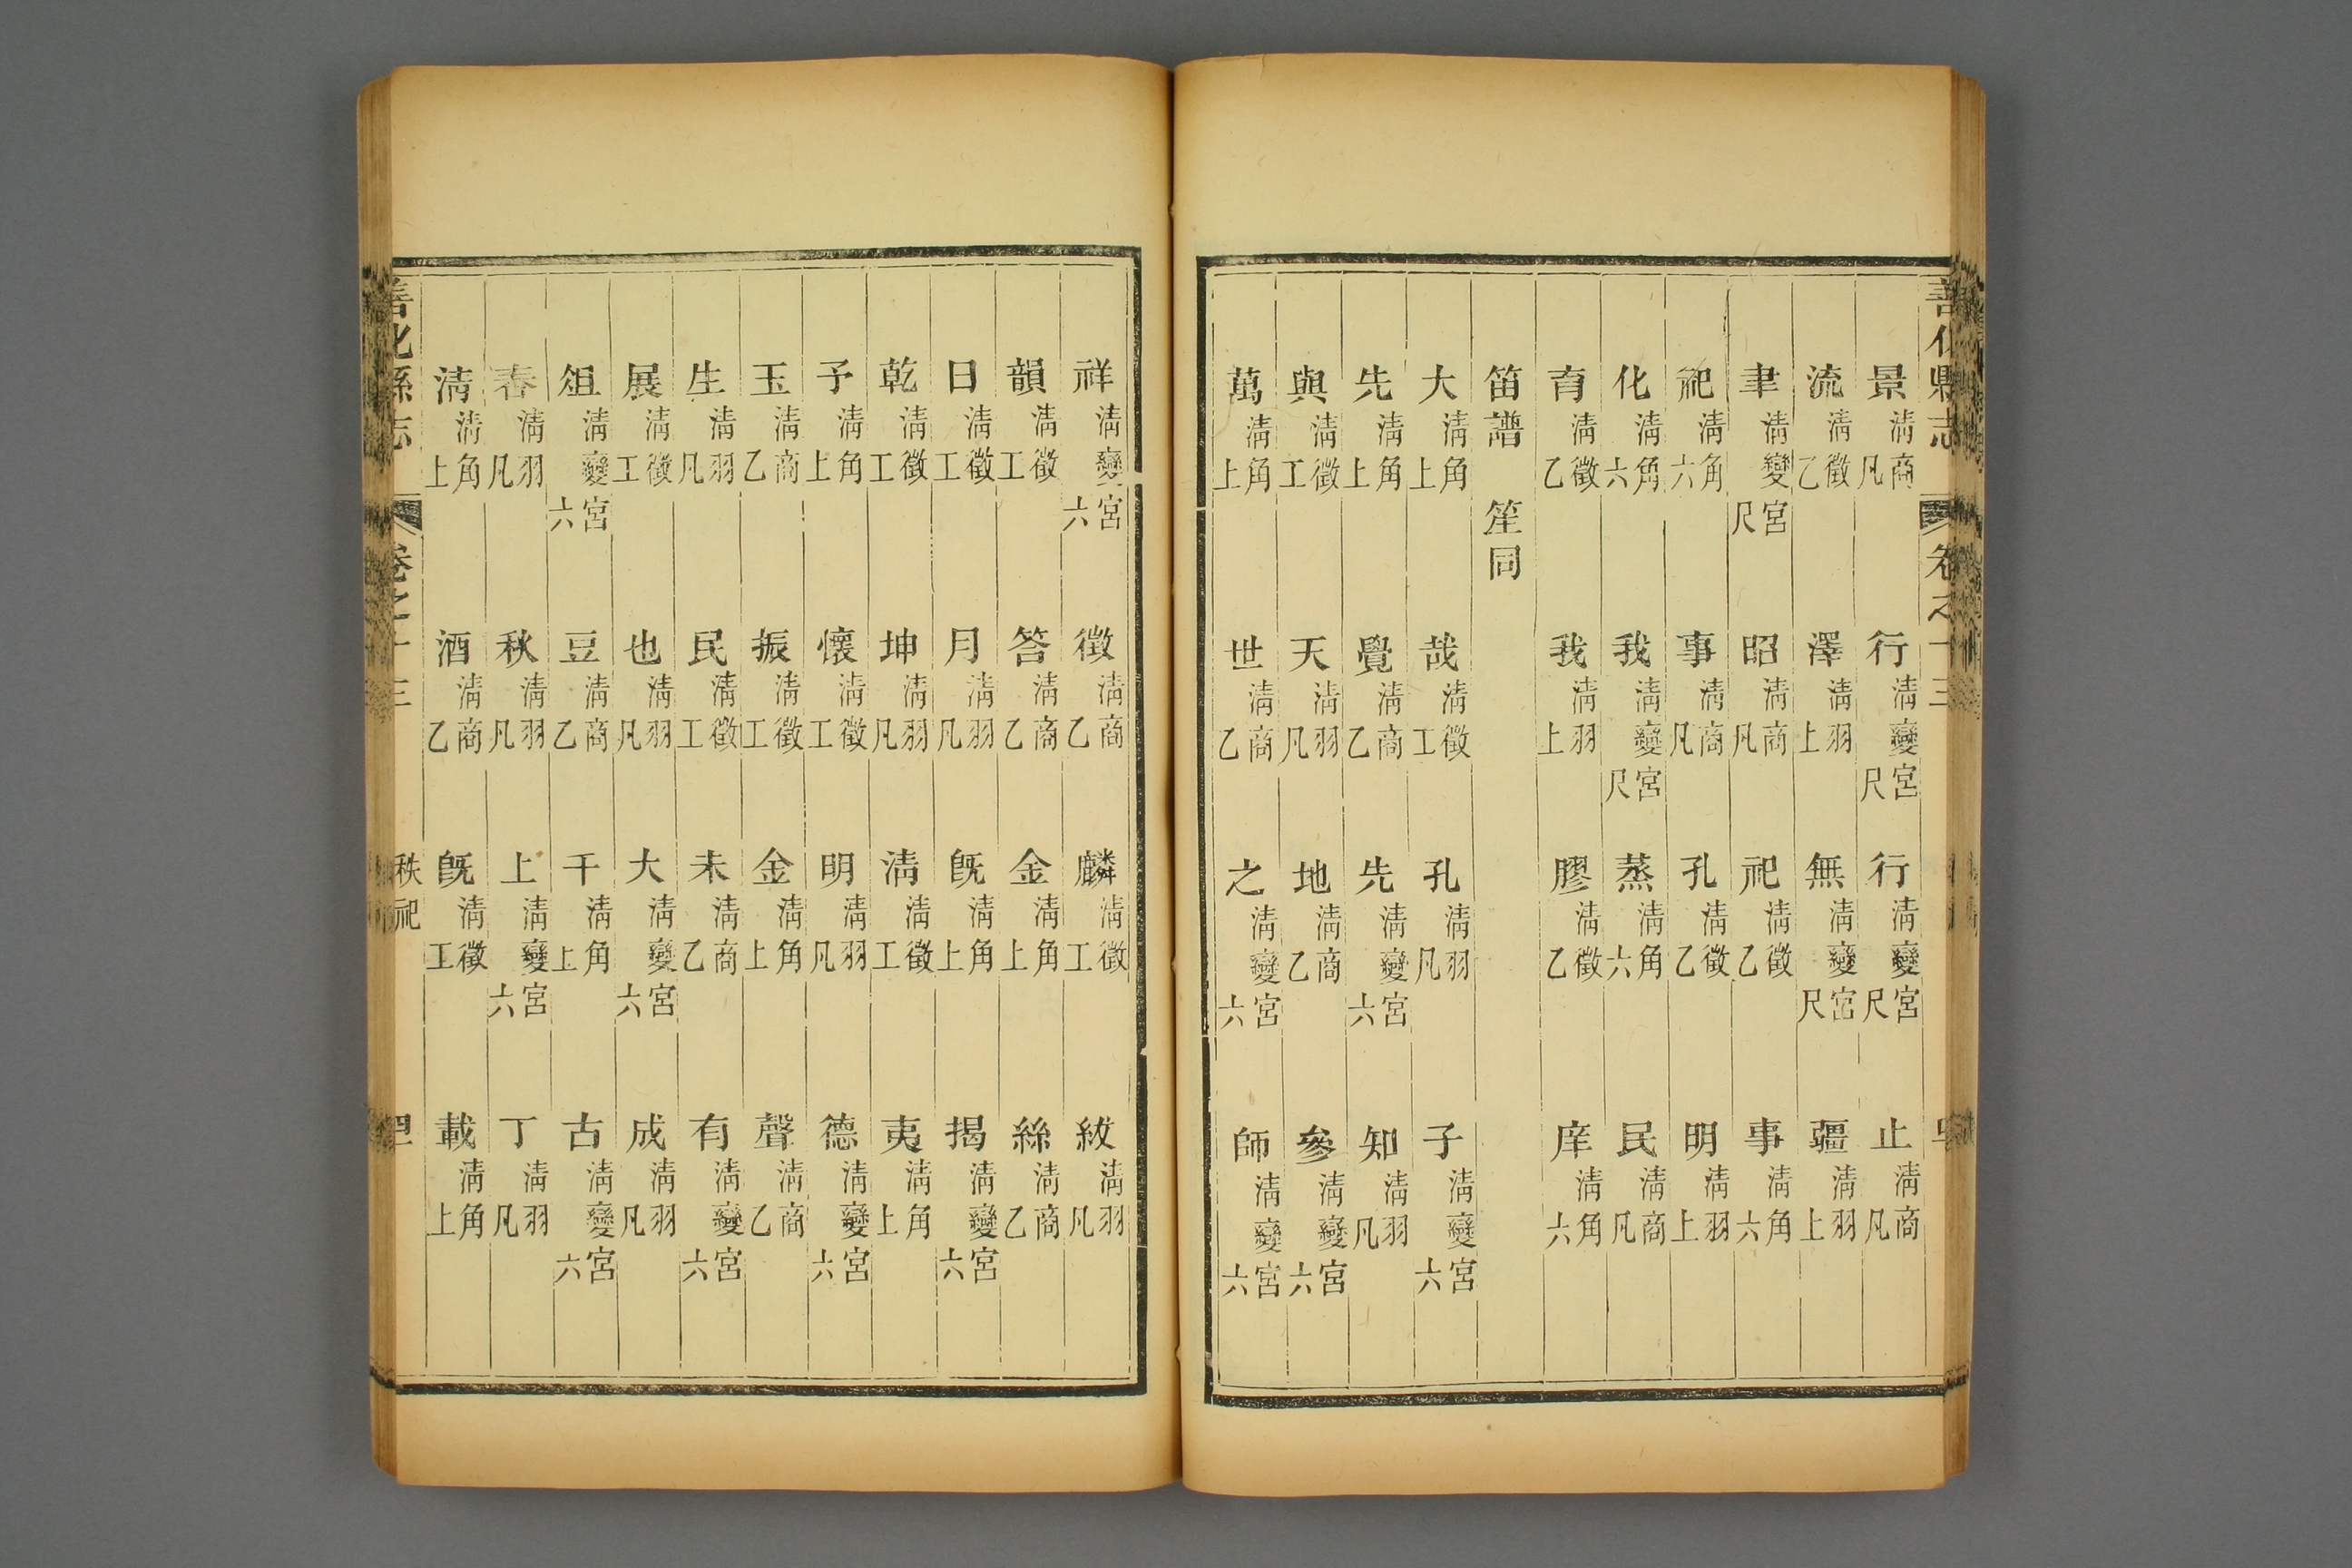 善化縣志 卷之十三
景清商凡 行清變宮尺 行清變宮尺 止清商凡
流清徵乙 澤清羽上 無清變宮尺 疆清羽上
聿清變宮尺 昭清商凡 祀清徵乙 事清角六
祀清角六 事清商凡 孔清徵乙 明清羽上
化清角六 我清變宮尺 蒸清角六 民清商凡
育清徵乙 我清羽上 膠清徵乙 庠清角六
笛譜 笙同
大清角上 哉清徵工 孔清羽凡 子清變宮六
先清角上 覺清商乙 先清變宮六 知清羽凡
與清徵工 天清羽凡 地清商乙 參清變宮六
萬清角上 世清商乙 之清變宮六 師清變宮六
祥清變宮六 徵清商乙 麟清徵工 紱清羽凡
韻清徵工 答清商乙 金清角上 絲清商乙
日清徵工 月清羽凡 旣清角上 揭清變宮六
乾清徵工 坤清羽凡 清清徵工 夷清角上
予清角上 懷清徵工 明清羽凡 德清變宮六
玉清商乙 振清徵工 金清角上 聲清商乙
生清羽凡 民清徵工 未清商乙 有清變宮六
展清徵工 也清羽凡 大清變宮六 成清羽凡
俎清變宮六 豆清商乙 干清角上 古清變宮六
春清羽凡 秋清羽凡 上清變宮六 丁清羽凡
清清角上 酒清商乙 旣清徵工 載清角上
善化縣志 卷之十三 秩祀